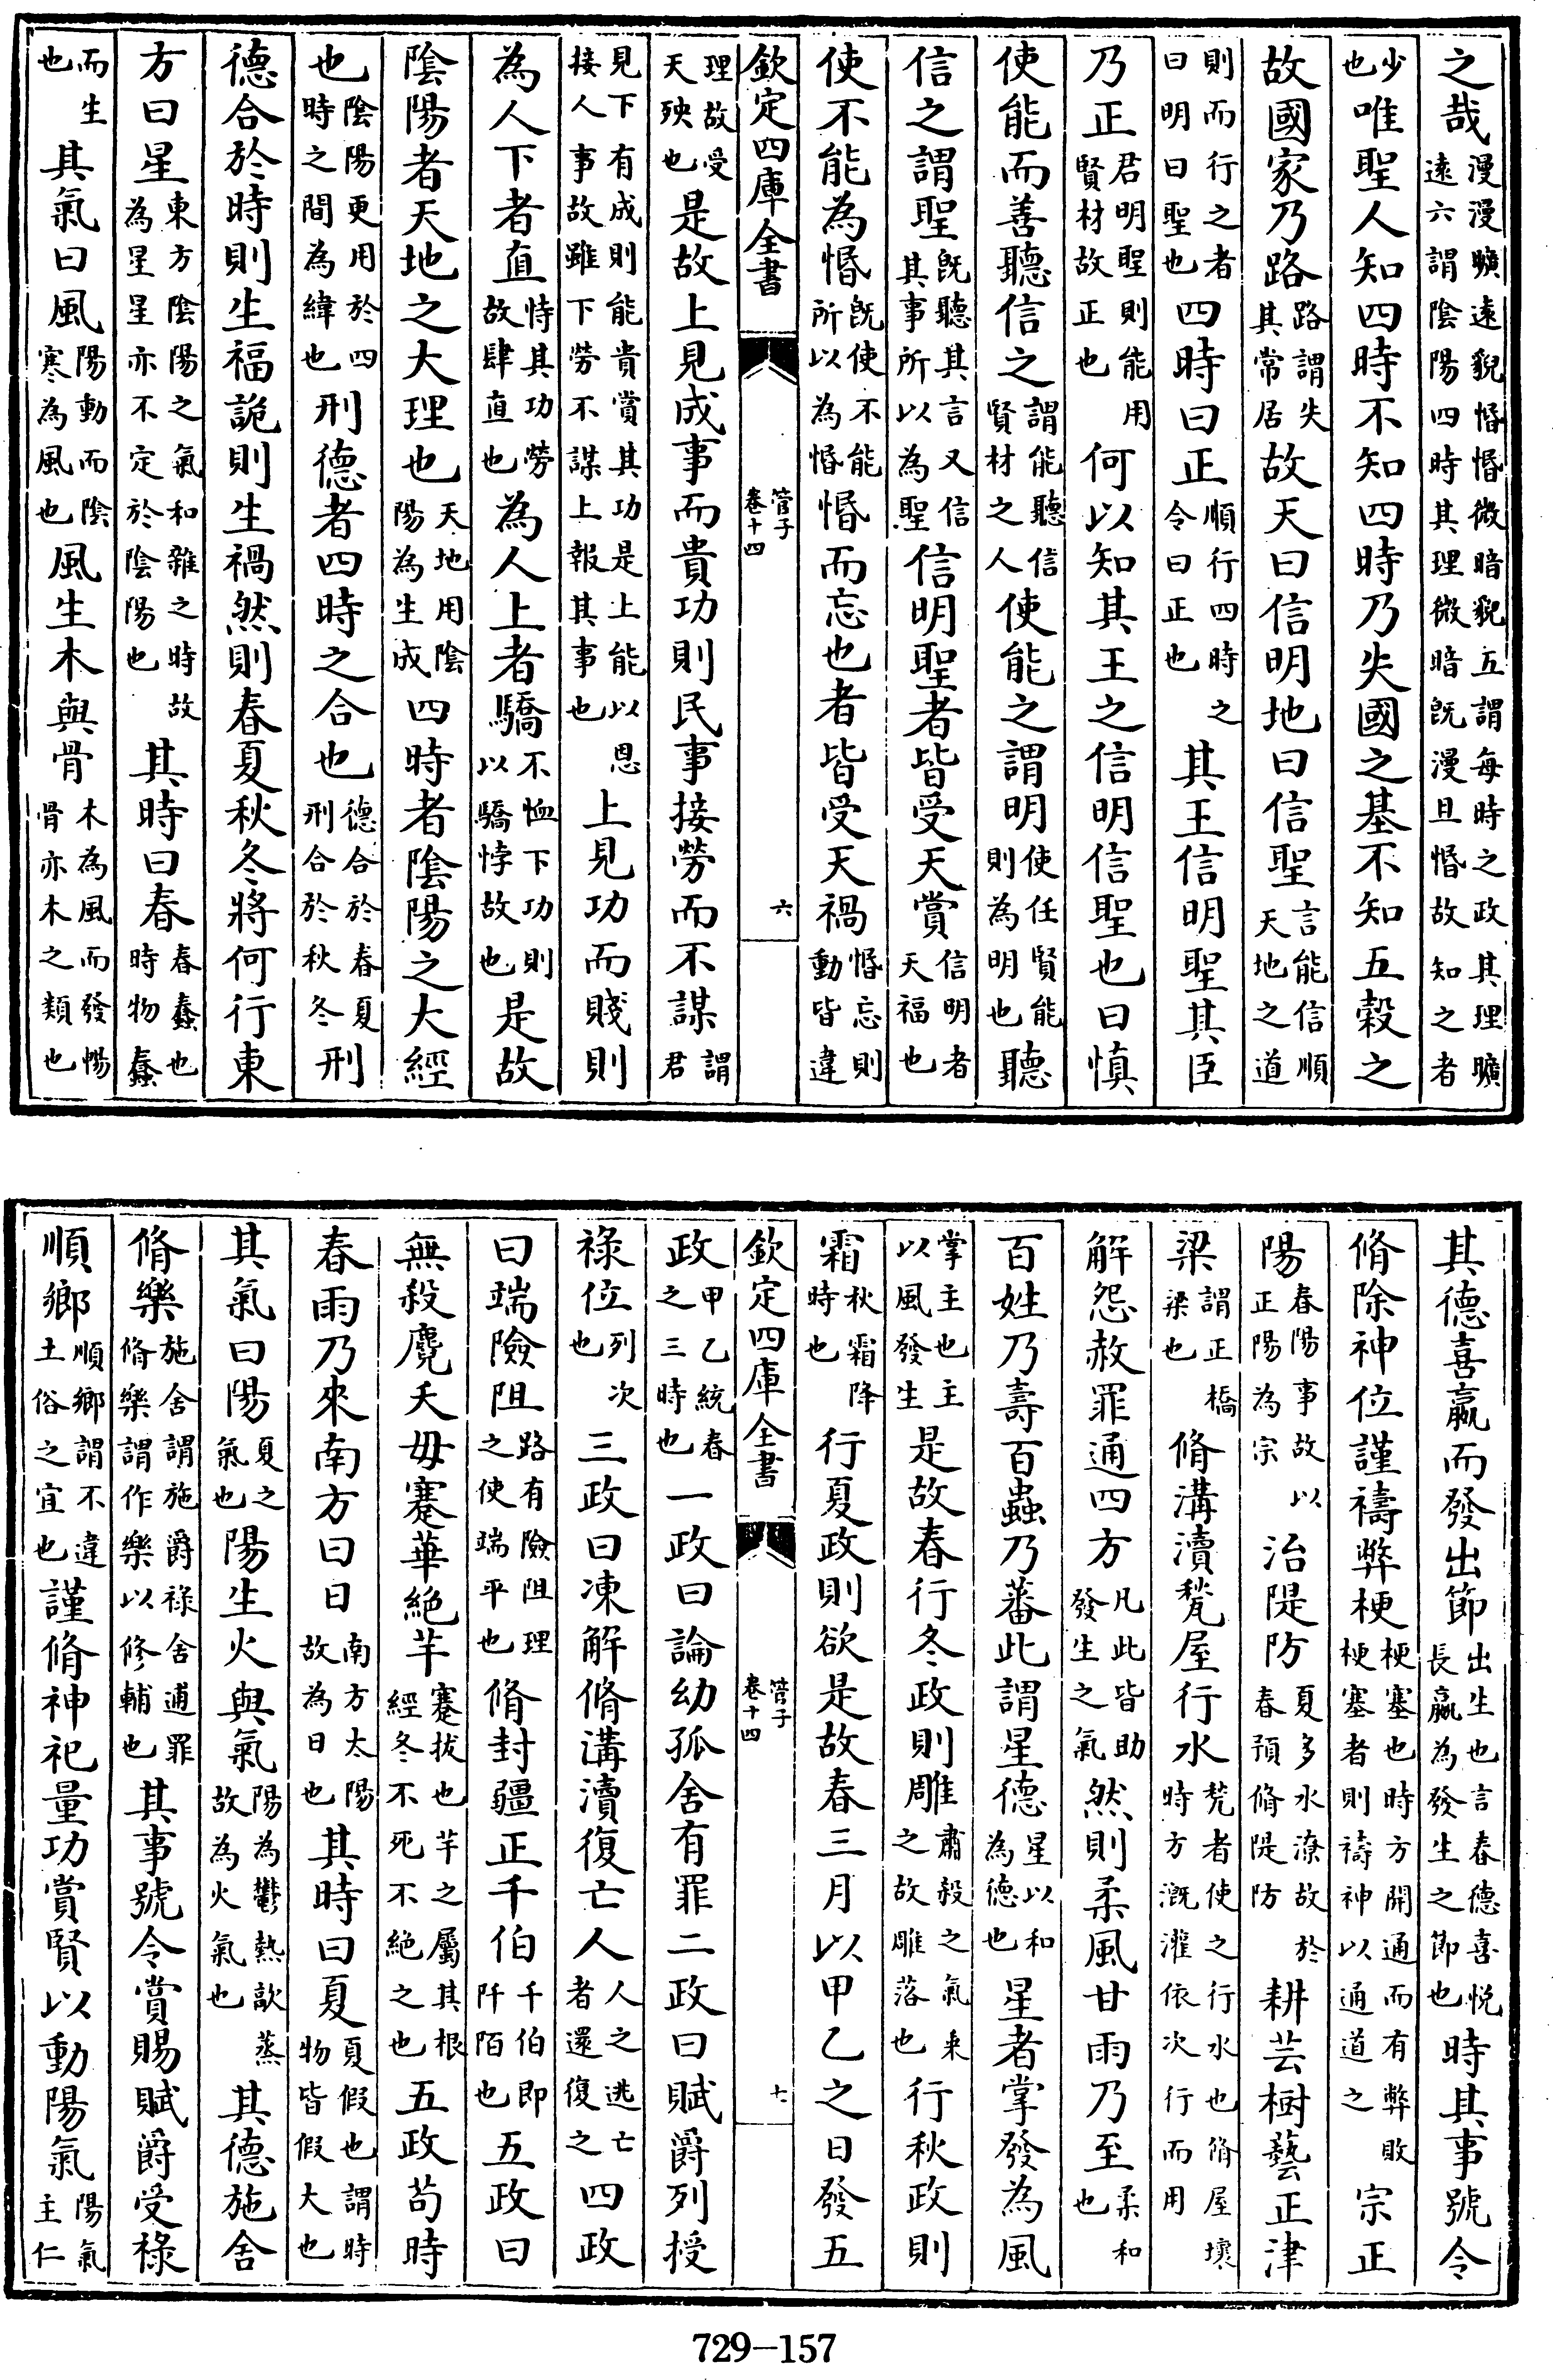 之哉漫漫曠遠貌惛惛微暗貌五謂每時之政其理曠遠六謂陰陽四時其理微暗既漫且惛故知之者
少也唯聖人知四時不知四時乃失國之基不知五穀之
故國家乃路路謂失其常居故天曰信明地曰信聖言能信順天地之道
則而行之者曰明曰聖也四時曰正順行四時之令曰正也其王信明聖其臣
乃正君明聖則能用賢材故正也何以知其王之信明信聖也曰慎
使能而善聽信之謂能聽信賢材之人使能之謂明使任賢能則為明也聽
信之謂聖既聽其言又信其事所以為聖信明聖者皆受天賞信明者天福也
使不能為惛既使不能所以為惛惛而忘也者皆受天禍惛忘則動皆違
欽定四庫全書 管子卷十四 六
理故受天殃也是故上見成事而貴功則民事接勞而不謀謂君
見下有成則能貴賞其功是上能以恩接人事故雖下勞不謀上報其事也上見功而賤則
為人下者直恃其功勞故肆直也為人上者驕不恤下功則以驕悖故也是故
陰陽者天地之大理也天地用陰陽為生成四時者陰陽之大經
也陰陽更用於四時之間為緯也刑德者四時之合也德合於春夏刑合於秋冬刑
德合於時則生福詭則生禍然則春夏秋冬將何行東
方曰星東方陰陽之氣和雜之時故為星星亦不定於陰陽也其時曰春春蠢也時物蠢
而生也其氣曰風陽動而陰寒為風也風生木與骨木為風而發暢骨亦木之類也
其德喜嬴而發出節出生也言春德喜悅長嬴為發生之節也時其事號令
脩除神位謹禱弊梗梗塞也時方開通而有弊敗梗塞者則禱神以通道之宗正
陽春陽事故以正陽為宗治隄防夏多水潦故於春預脩隄防耕芸樹藝正津
梁謂正橋梁也脩溝瀆甃屋行水甃者使之行水也脩屋壞時方溉灌依次行而用
解怨赦罪通四方凡此皆助發生之氣然則柔風甘雨乃至柔和也
百姓乃壽百蟲乃蕃此謂星德星以和為德也星者掌發為風
掌主也主以風發生是故春行冬政則雕肅殺之氣來之故雕落也行秋政則
霜秋霜降時也行夏政則欲是故春三月以甲乙之日發五
欽定四庫全書 管子卷十四 七
政甲乙統春之三時也一政曰論幼孤舍有罪二政曰賦爵列授
祿位列次也三政曰凍解脩溝瀆復亡人人之逃亡者還復之四政
曰端險阻路有險阻理之使端平也脩封疆正千伯千伯即阡陌也五政曰
無殺麑夭毋蹇華絕芊蹇拔也芊之屬其根經冬不死不絕之也五政苟時
春雨乃來南方曰日南方太陽故為日也其時曰夏夏假也謂時物皆假大也
其氣曰陽夏之氣也陽生火與氣陽為鬱熱歊蒸故為火氣也其德施舍
脩樂施舍謂施爵祿舍逋罪脩樂謂作樂以修輔也其事號令賞賜賦爵受祿
順鄉順鄉謂不違土俗之宜也謹脩神祀量功賞賢以動陽氣陽氣主仁
729-157